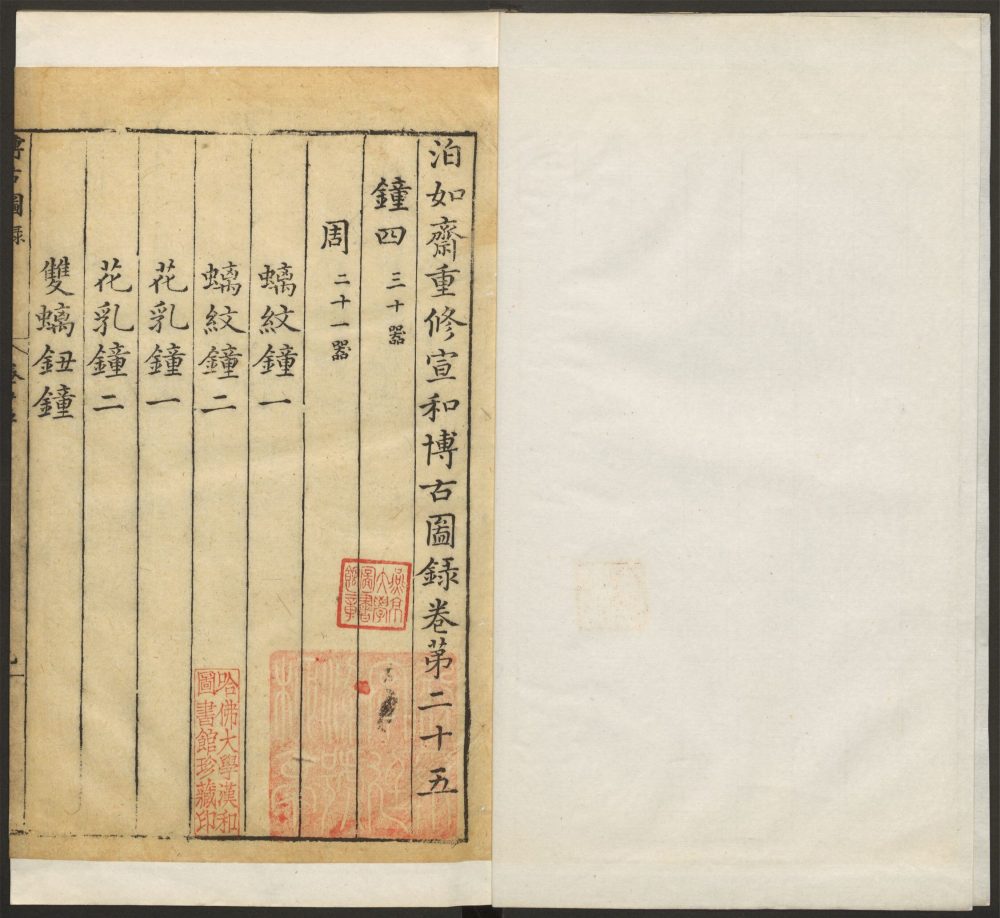 泊如齋重修宣和博古圖錄卷第二十五
鐘四 三十器
周 二十一器
螭紋鐘一
螭紋鐘二
花乳鐘一
花乳鐘二
雙螭鈕鐘
博古圖錄
哈佛大學漢和
圖書館珍藏印